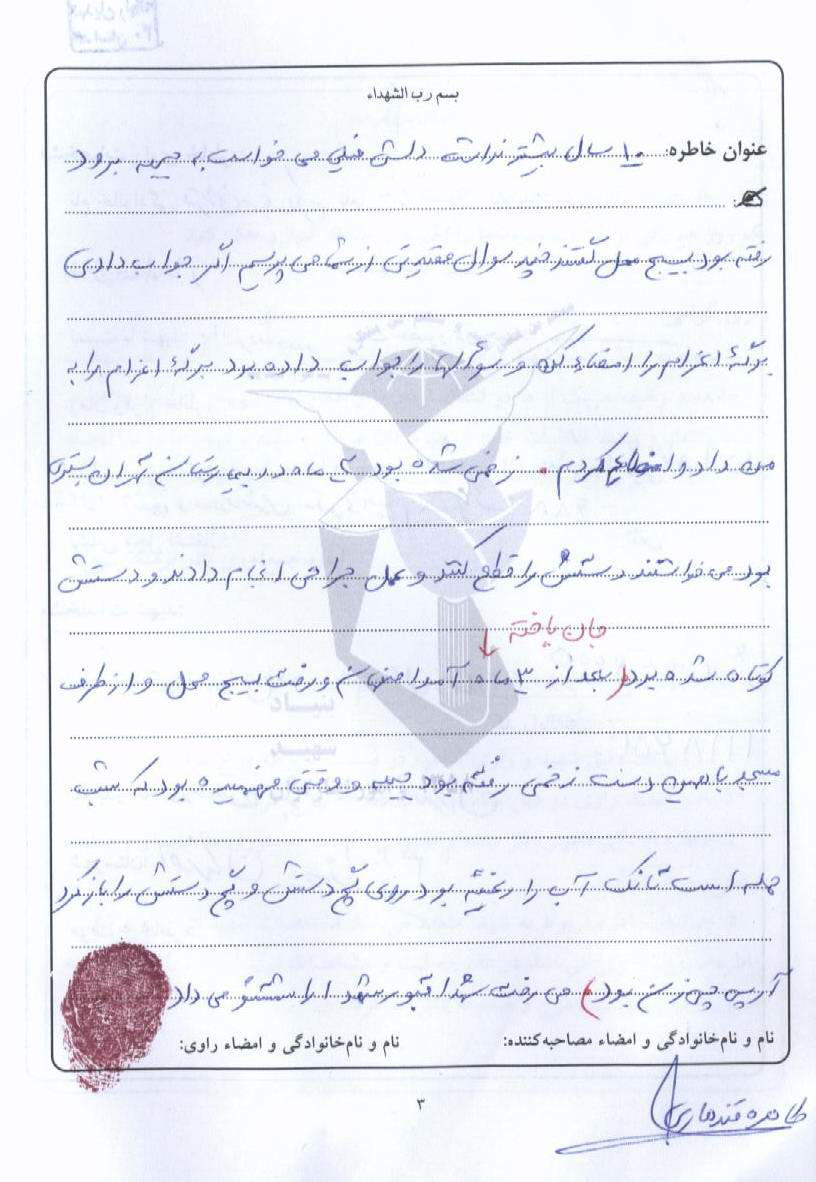 بسم رب الشهداء
عنوان خاطره: ۱۰ سال بیشتر نداشت دلش خیلی می خواست به جبهه برود
رفته بود بسیج محل گفتند چند سوال عقیدتی از شما می پرسیم اگر جواب دادی
برگهٔ اعزام را امضاء کن و سؤالها را جواب داده بود برگهٔ اعزام را به
من داد و امضاء کردم . زخمی شده بود ماه در بیمارستان تهران بستری
بود می خواستند دستش را قطع کنند و عمل جراحی انجام دادند و دستش
جان یافته
کوتاه شده بود (بعد از ۳ ماه آمد اصفهان و رفت بسیج محل و از طرف
مسجد با همین دست زخمی رفته بود جبهه و وقتی فهمیده بود که شب
حمله است تانک آب را ریخته بود روی گچ دستش و گچ دستش را باز کرد
آر پی جی زن بود) می رفت قبور شهدا را شستشو می داد
نام و نام‌خانوادگی و امضاء مصاحبه‌کننده:
نام و نام‌خانوادگی و امضاء راوی:
۳
طاهره قندهاری
بنیاد
شهید